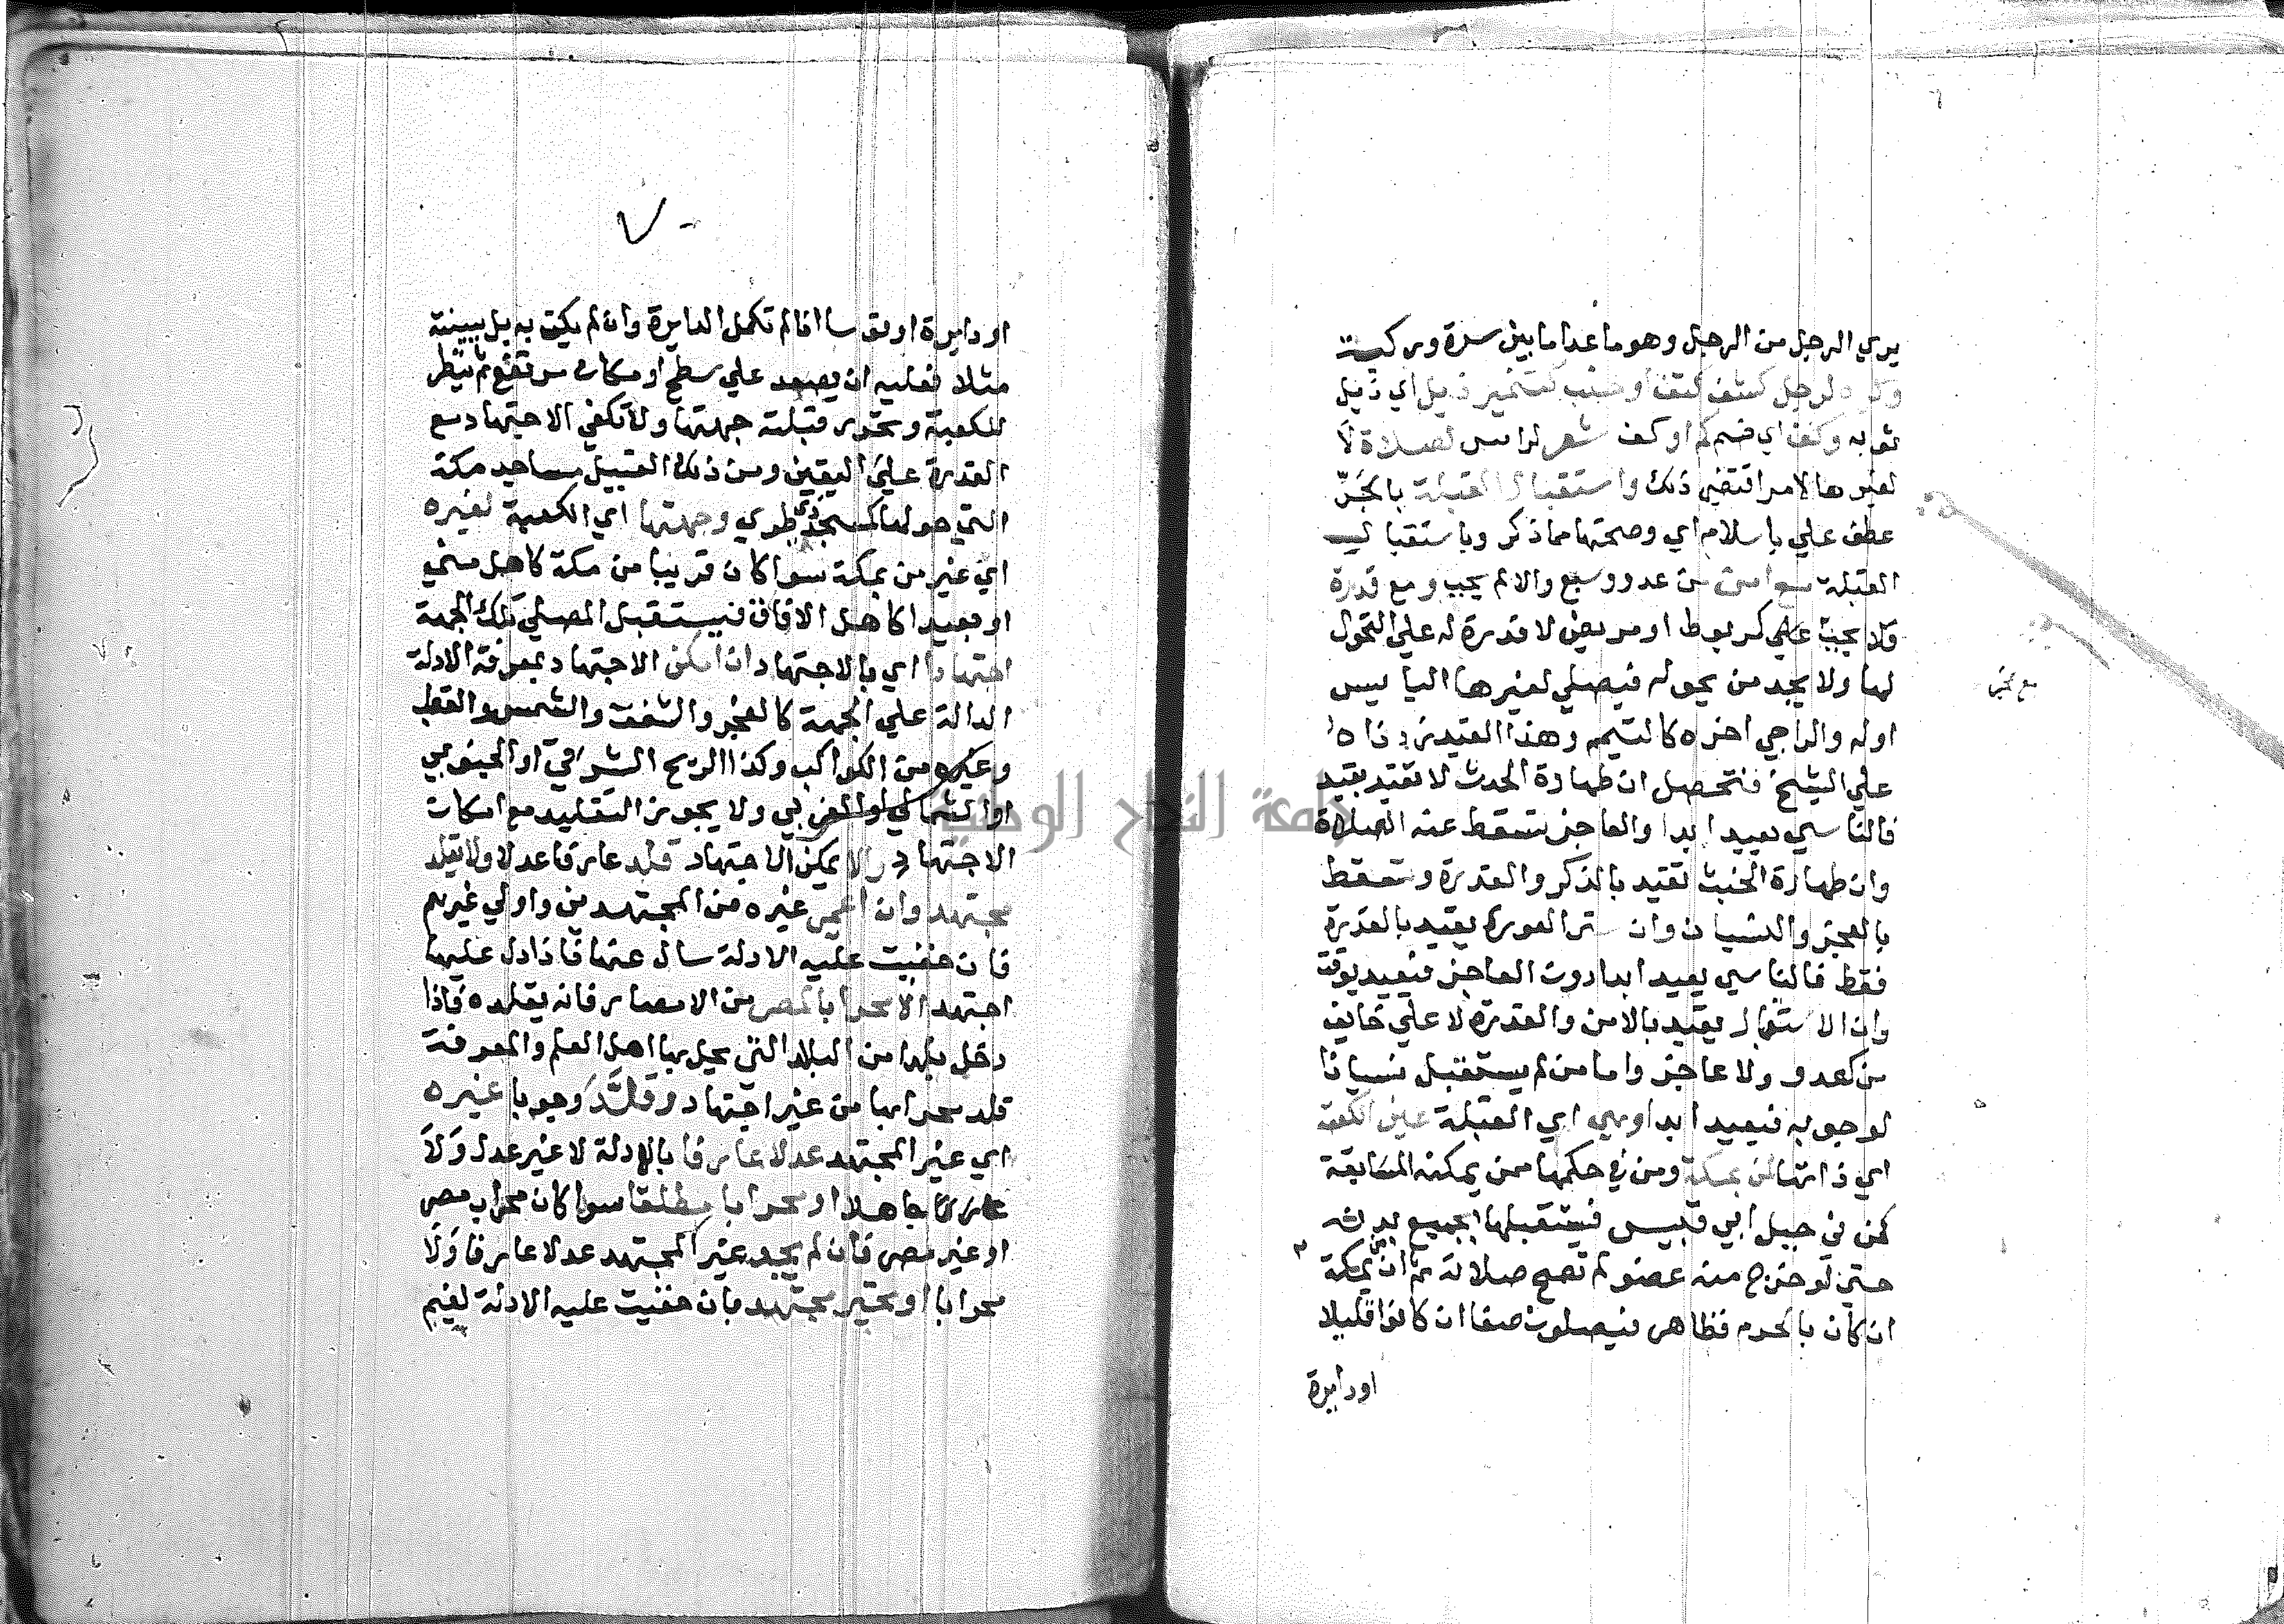 يري الرجل من الرجل وهو ماعدا ما بين سرة وركبة
وكره لرجل كشف كتف او جنب كتشمير ذيل اي ذيل
ثوبه وكف اي ضم كم او كف شعر لراس لصلاة لا
لغيرها لامر اقتضي ذلك واستقبال القبلة بالجر
عطف علي باسلام اي وصحتها مما ذكر وباستقبال
القبلة مع امن من عدو وسبع والا لم يجب ومع قدرة
فلا يجب علي كربوط او مريض لا قدرة له علي التحول
لها ولا يجد من يحوله فيصلي لغيرها اليايس
اوله والراجي اخره كالتيمم وهذا القيد زاده
علي الشيخ فتحصل ان طهارة الحدث لا تقيد بقيد
فالناسي يعيد ابدا والعاجز تسقط عنه الصلاة
وان طهارة الخبث تقيد بالذكر والقدرة وتسقط
بالعجز والنسيان وان ستر العورة يقيد بالقدرة
فقط فالناسي يعيد ابدا دون العاجز فيعيد بوقت
وان الاستقبال يقيد بالامن والقدرة لا علي خايف
من كعدو ولا عاجز واما من لم يستقبل نسيانا
لوجوبه فيعيد ابدا وهي اي القبلة عين الكعبة
اي ذاتها لمن بمكة ومن في حكمها ممن يمكنه المسابقة
كمن في جبل ابي قبيس فيستقبلها بجميع بدنه
حتي لو خرج منه عضو لم تصح صلاته ثم ان من بمكة
ان كان بالحرم فظاهر فيصلون صفا ان كانوا قليلا
او دايرة
جامعة النجاح الوطنية
٧
او دايرة او قوسا اذا لم تكمل الدايرة وان لم يكن به بل ببيته
مثلا فعليه ان يصعد علي سطح او مكان مرتفع ثم ينظر
للكعبة ويحرر قبلته جهتها ولا تكفي الاجتهاد مع
القدرة علي اليقين ومن ذلك القبيل مساجد مكة
التي حولها كمسجد ذي طوي وجهتها اي الكعبة لغيره
اي غير من بمكة سوا كان قريبا من مكة كاهل مني
او بعيدا كاهل الافاق فيستقبل المصلي تلك الجهة
اجتهادا اي بالاجتهاد ان امكن الاجتهاد بمعرفة الادلة
الدالة علي الجهة كالفجر والشفق والشمس والقطب
وغيره من الكواكب وكذا الريح الشرقي او الجنوبي
او الشمالي او الغربي ولا يجوز التقليد مع امكان
الاجتهاد والا يمكن الاجتهاد قلد عارفا عدلا ولا يقلد
مجتهد وان اعمي غيره من المجتهدين واولي غيرهم
فان خفيت عليه الادلة سال عنها فاذا دل عليها
اجتهد الا محرابا لمصر من الامصار فانه يقلده فاذا
دخل بلدا من البلاد التي يحل بها اهل العلم والمعرفة
قلد محرابها من غير اجتهاد وقلد وجوبا غيره
اي غير المجتهد عدلا عارفا بالادلة لا غير عدل ولا
عارفا جاهلا او محرابا مطلقا سوا كان محراب مصر
او غير مصر فان لم يجد غير المجتهد عدلا عارفا ولا
محرابا او تحير مجتهد بان خفيت عليه الادلة لغيم